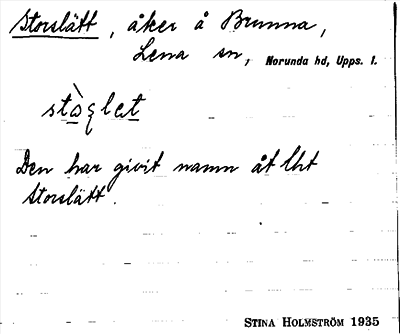 Storslätt, åker å Brunna,
Lena sn, Norunda hd, Upps. l.
Den har givit namn åt lht
Storslätt.
STINA HOLMSTRÖM 1935